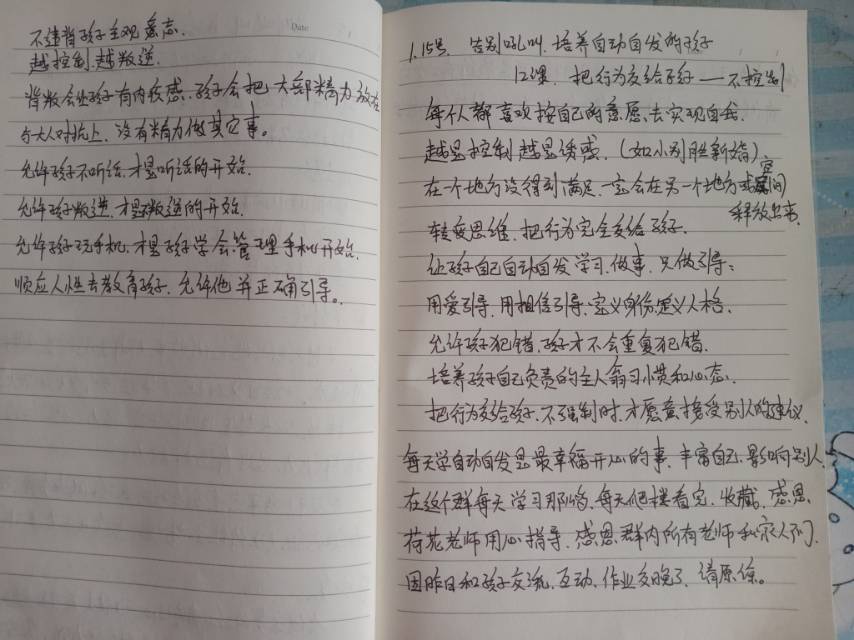 不违背孩子主观意志.
Date
越控制.越叛逆.
背叛会让孩子有内疚感.孩子会把大部精力放在
与大人对抗上,没有精力做其它事。
允许孩子不听话.才是听话的开始.
允许孩子叛逆.才是叛逆的开始.
允许孩子玩手机,才是孩子学会管理手机开始.
顺应人性去教育孩子.允许他并正确引导。
1.15号. 告别吼叫.培养自动自发的孩子
12课. 把行为交给孩子——不控制
每个人都喜欢按自己的意愿去实现自我.
越是控制越是诱惑.(如小别胜新婚)
在一个地方没得到满足.一定会在另一个地方或空间
释放出来.
转变思维.把行为完全交给孩子.
让孩子自己自动自发学习.做事.只做引导:
用爱引导.用相信引导.定义身份.定义人格.
允许孩子犯错.孩子才不会重复犯错.
培养孩子自己负责的主人翁习惯和心态.
把行为交给孩子.不强制时.才愿意接受别人的建议.
每天学自动自发是最幸福开心的事.丰富自己.影响别人.
在这个群每天学习那些.每天爬楼看完.收藏.感恩
荷花老师用心指导.感恩群内所有老师和家人们.
因昨日和孩子交流,互动,作业交晚了,请原谅。